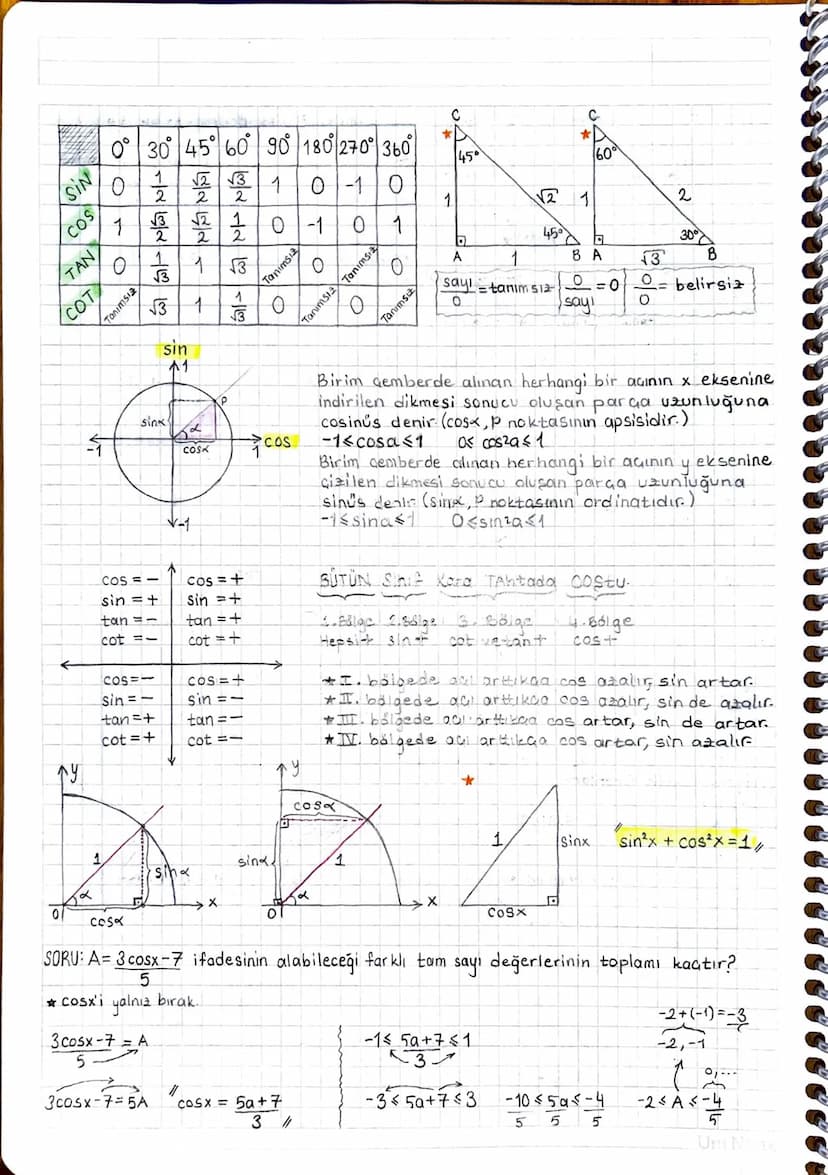 0° 30° 45° 60° 90° 180° 270° 360°
SIN 0 1/2 √2/2 √3/2 1 0 -1 0
COS 1 √3/2 √2/2 1/2 0 -1 0 1
TAN 0 1/√3 1 √3 Tanımsız 0 Tanımsız 0
COT Tanımsız √3 1 1/√3 0 Tanımsız 0 Tanımsız
C 45° 1 √2 45° A 1 B
C 60° 1 2 30° A √3 B
sayı/0 = tanımsız 0/sayı = 0 0/0 = belirsiz
sin
1
P
sinα α
-1 cosα 1 cos
-1
Birim çemberde alınan herhangi bir açının x eksenine
indirilen dikmesi sonucu oluşan parça uzunluğuna
cosinüs denir (cosα, P noktasının apsisidir.)
-1≤cosa≤1 0≤ cos2a≤1
Birim çemberde alınan herhangi bir açının y eksenine
çizilen dikmesi sonucu oluşan parça uzunluğuna
sinüs denir (sinα, P noktasının ordinatıdır.)
-1≤sina≤1 0≤sin2a≤1
cos = - cos = +
sin = + sin = +
tan = - tan = +
cot = - cot = +
cos = - cos = +
sin = - sin = -
tan = + tan = -
cot = + cot = -
BÜTÜN Sınıf Kara TAhtada COStu.
1. Bölge 2. Bölge 3. Bölge 4. Bölge
Hepsi + sin + cot ve tan + cos +
★ I. bölgede açı arttıkça cos azalır, sin artar.
★ II. bölgede açı arttıkça cos azalır, sin de azalır.
★ III. bölgede açı arttıkça cos artar, sin de artar.
★ IV. bölgede açı arttıkça cos artar, sin azalır
y 1 sinα α 0 cosα x
y cosα sinα 1 α 0 x
1 sinx cosx
sin²x + cos²x = 1
SORU: A= 3cosx-7/5 ifadesinin alabileceği farklı tam sayı değerlerinin toplamı kaçtır?
★ cosx'i yalnız bırak.
3cosx-7/5 = A
3cosx-7=5A cosx = 5a+7/3
-1≤ 5a+7/3 ≤1
-3≤ 5a+7 ≤3
-10/5 ≤ 5a/5 ≤ -4/5
-2+(-1)=-3
-2,-1
0,...
-2≤ A ≤ -4/5